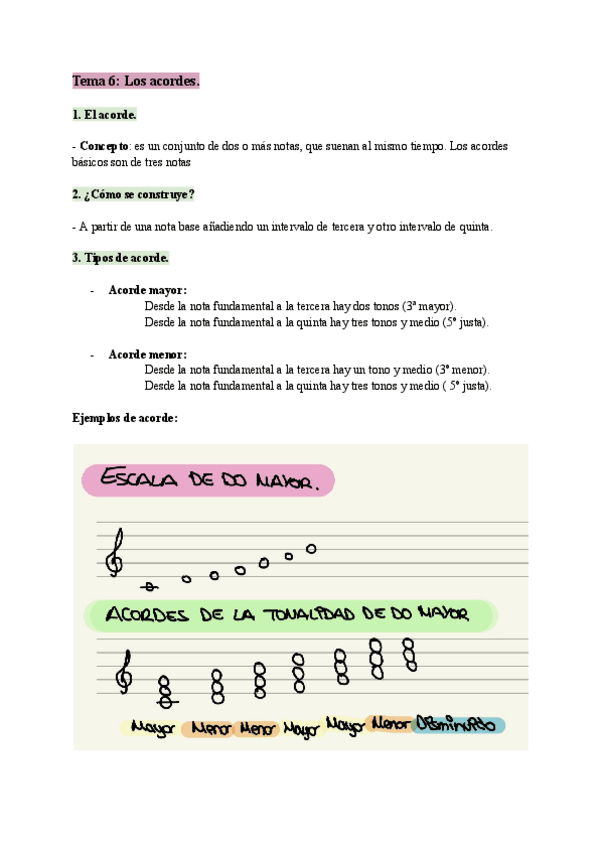 Tema 6: Los acordes.
1. El acorde.
- Concepto: es un conjunto de dos o más notas, que suenan al mismo tiempo. Los acordes
básicos son de tres notas
2. ¿Cómo se construye?
- A partir de una nota base añadiendo un intervalo de tercera y otro intervalo de quinta.
3. Tipos de acorde.
- Acorde mayor:
Desde la nota fundamental a la tercera hay dos tonos (3ª mayor).
Desde la nota fundamental a la quinta hay tres tonos y medio (5º justa).
- Acorde menor:
Desde la nota fundamental a la tercera hay un tono y medio (3º menor).
Desde la nota fundamental a la quinta hay tres tonos y medio ( 5º justa).
Ejemplos de acorde:
ESCALA DE DO MAYOR.
ACORDES DE LA TONALIDAD DE DO MAYOR
Mayor Menor Menor Mayor Mayor Menor Disminuido